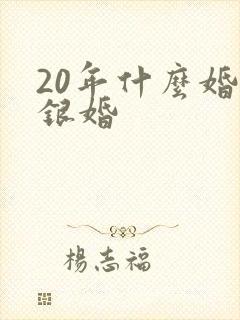 20年什麼婚
銀婚
楊志福